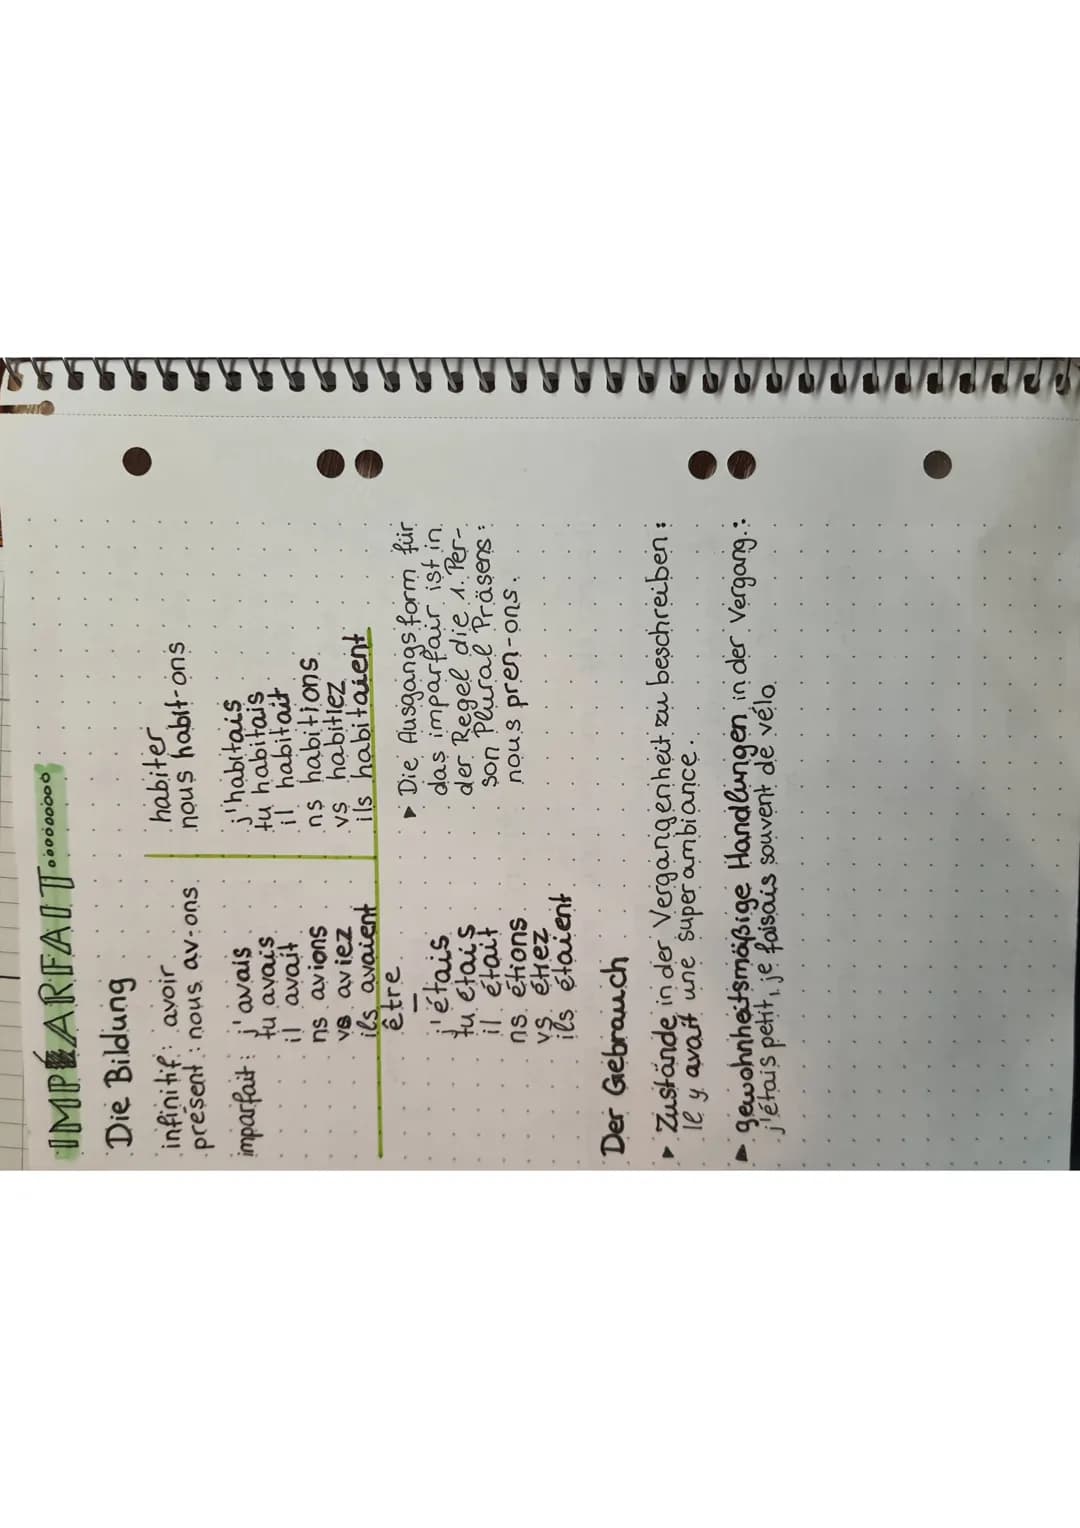 IMPARFAIT
Die Bildung
infinitif: avoir
présent: nous av-ons
habiter
nous habit-ons
imparfait: j'avais
tu avais
il avait
ns avions
vs aviez
ils avaient
j'habitais
tu habitais
il habitait
ns habitions
vs habitiez
ils habitaient
être
j'étais
tu étais
il était
ns étions
vs étiez
ils étaient
▸ Die Ausgangsform für
das imparfair ist in
der Regel die 1. Per-
son Plural Präsens:
nous pren-ons.
Der Gebrauch
▸ Zustände in der Vergangenheit zu beschreiben:
Il y avait une super ambiance.
▸ gewohnheitsmäßige Handlungen in der Vergang.:
j'étais petit, je faisais souvent de vélo